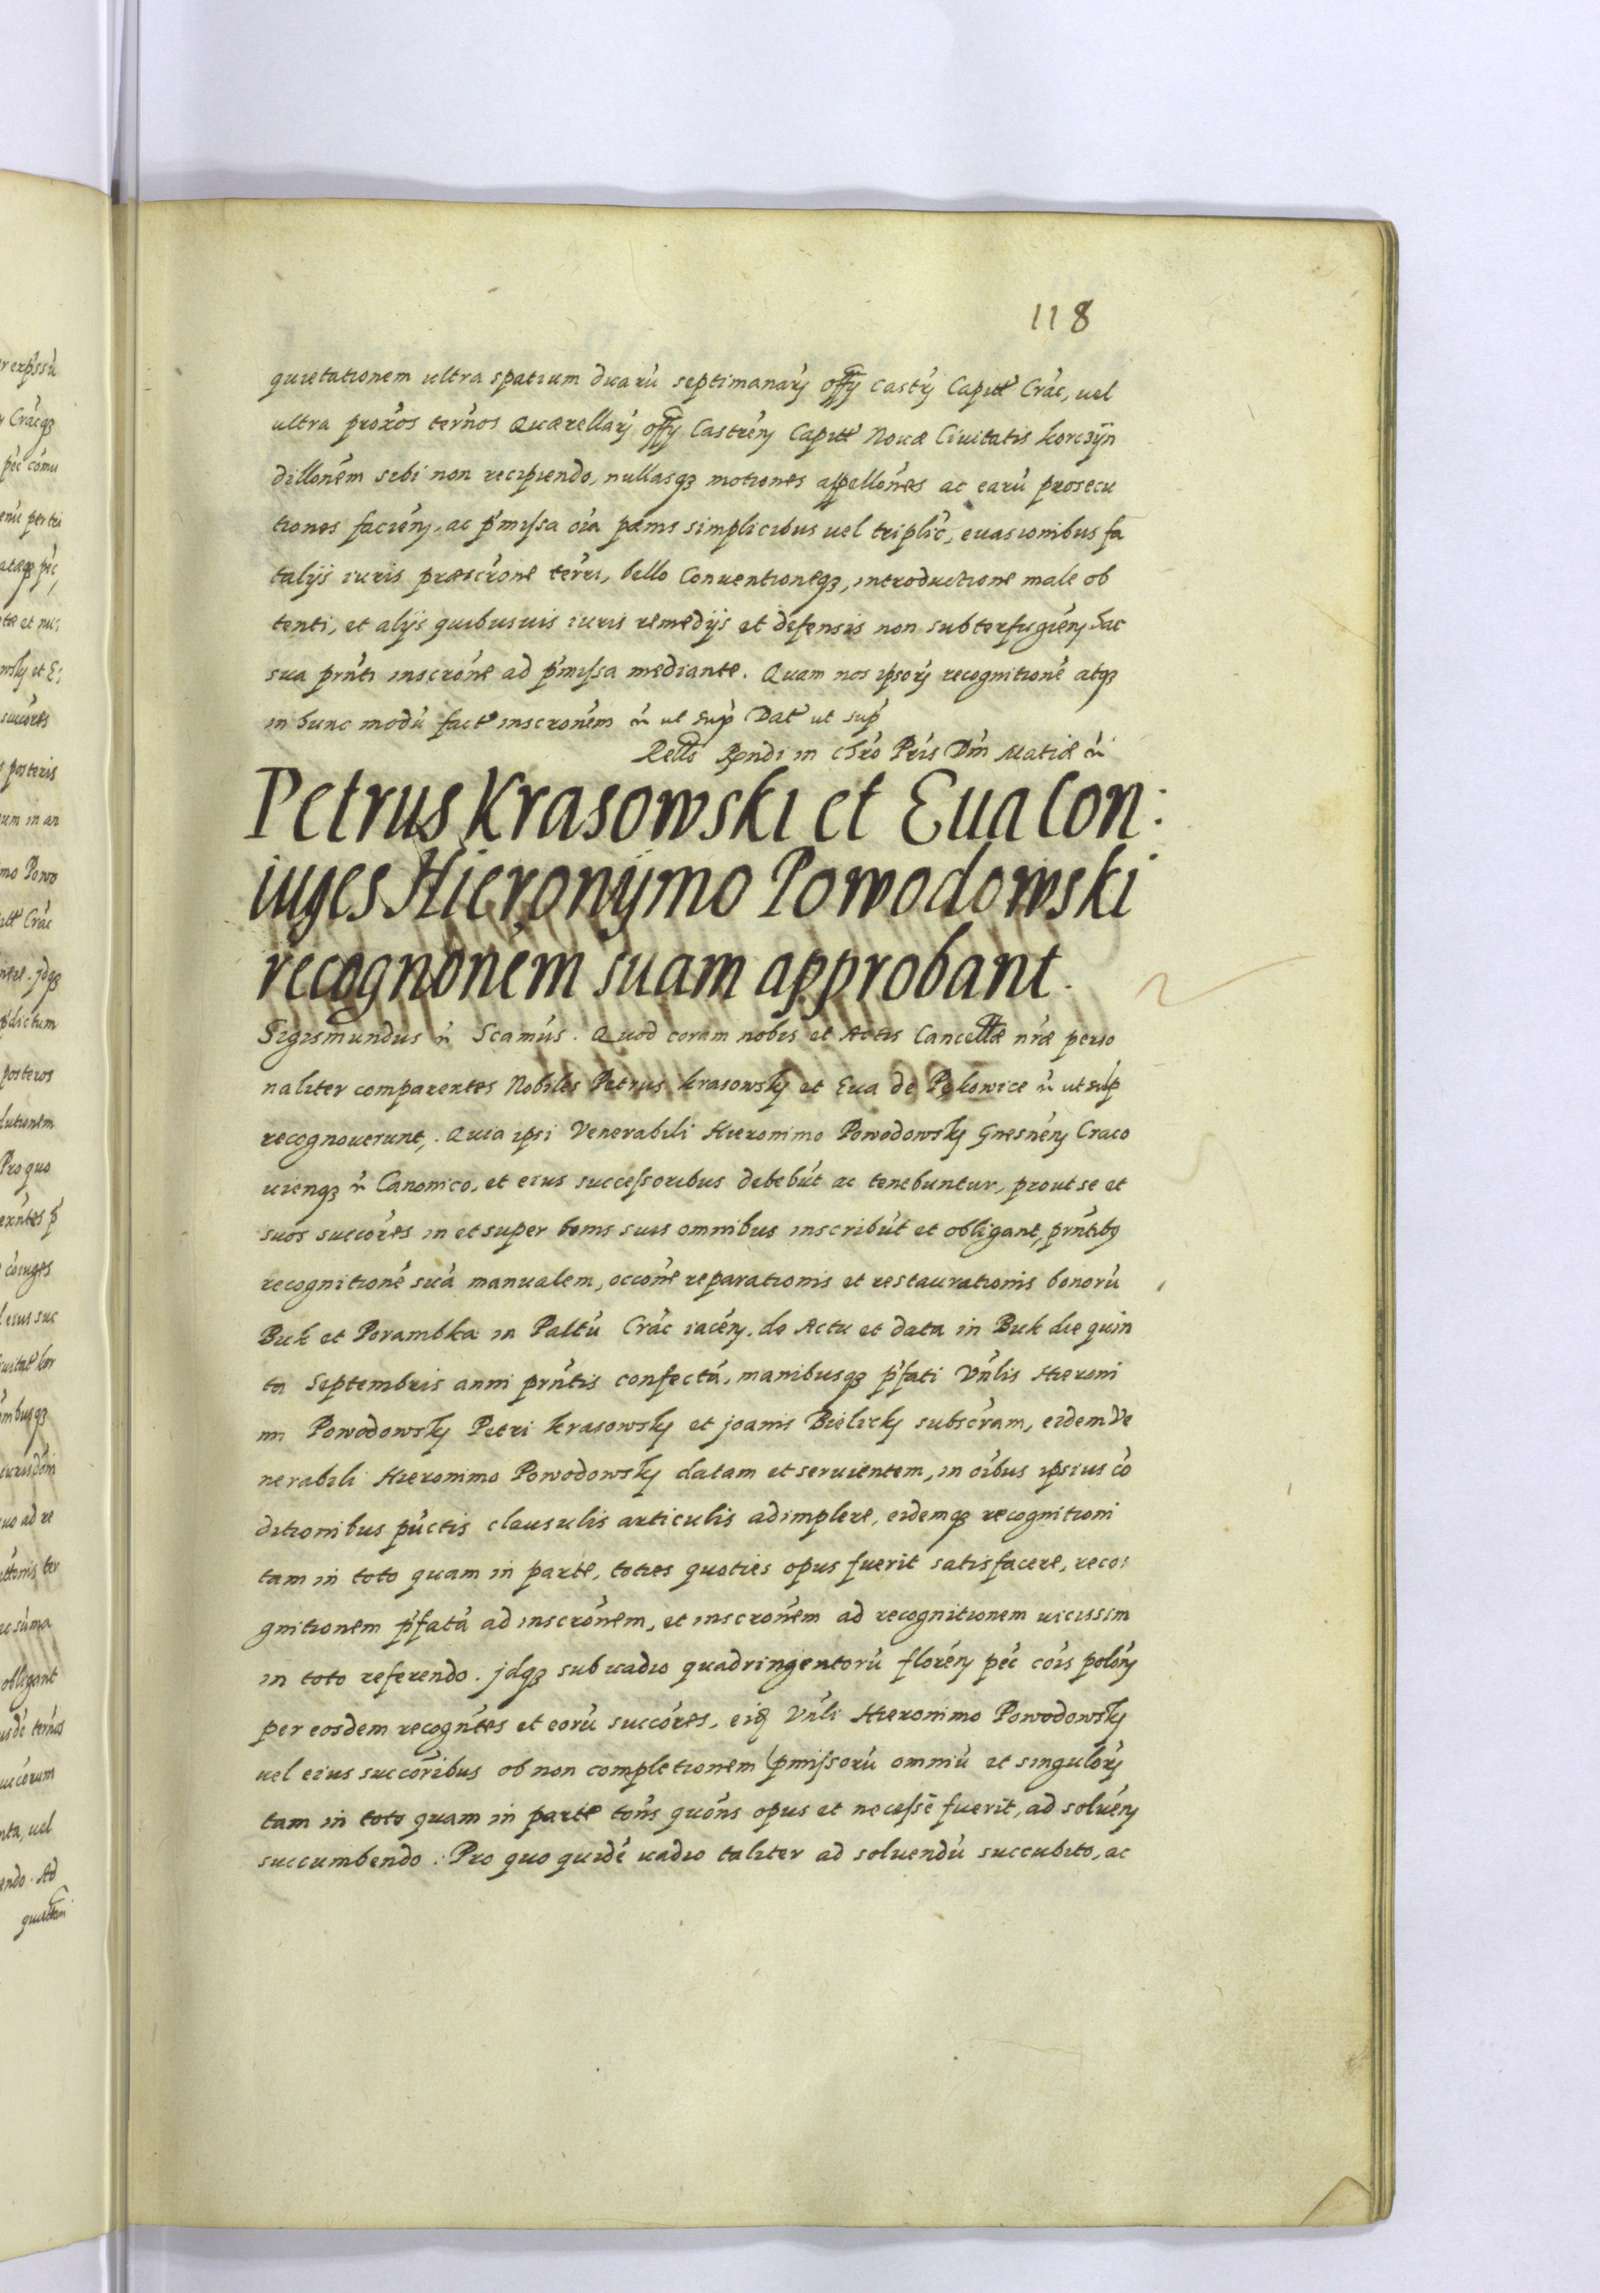 118
quietationem ultra spatium duarũ septimanarũ offŷ castrŷ Capitł Crac̃, uel
ultra prox̃os ter̃nos Quærellarũ offŷ Castren̂ Capitł Nouæ Ciuitatis korczÿn
dillõnem sibi non recipiendo, nullasqȝ motiones appellõnes ac earũ prosecu
tiones facien̂, ac p̃missa oĩa pænis simplicibus uel triplic̃, euasionibus fa
talÿs iuris præscr̃one ter̃ri, bello Conuentioneqȝ, introductione male ob
tenti, et alÿs quibusuis iuris remedÿs et defensis non subterfugien̂ hac
sua prñti inscrõne ad p̃missa mediante. Quam nos ipsorũ recognitionẽ atqȝ
in hunc modũ fact̃ inscrõnem ẽ ut sup̃ Dat̃ ut sup̃
Rello Rẽndi in Chr̃o Pr̃is Dñi Matiæ ẽ
Petrus Krasowski et Eua Con:
iuges Hieronÿmo Powodowski
recognõnem suam approbant.
Sigismundus ẽ Scamũs. Quod coram nobis et Actis Cancellæ nr̃æ perso
naliter comparentes Nobiles Petrus Krasowskŷ et Eua de Pękowice ẽ ut sup̃
recognouerunt, Quia ipsi Venerabili Hieronimo Powodowskŷ Gnesnen̂ Craco
uienqȝ ẽ Canonico, et eius successoribus debebũt ac tenebuntur, prout se et
suos succõres in et super bonis suis omnibus inscribũt et obligant, prñtibȝ
recognitionẽ suã manualem, occõne reparationis et restaurationis bonorũ
Buk et Porambka in Paltũ Crac̃ iacen̂, de Actu et data in Buk die quin
ta Septembris anni prñtis confectã, manibusqȝ p̃fati Vñlis Hieroni
mi Powodowskŷ Petri krasowskŷ et joanis Bielickŷ subscr̃am, eidem Ve
nerabili Hieronimo Powodowskŷ datam et seruientem, in oĩbus ipsius cõ
ditionibus pũctis clausulis articulis adimplere, eidemqȝ recognitioni
tam in toto quam in parte, toties quoties opus fuerit satisfacere, reco:
gnitionem p̃fatã ad inscrõnem, et inscrõnem ad recognitionem uicissim
in toto referendo. jdqȝ sub uadio quadringentorũ floren̂ pec̃ cõis polon̂
per eosdem recogñtes et eorũ succõres, eiȝ Vñli Hieronimo Powodowskŷ
uel eius succõribus ob non completionem p̃missorũ omniũ et singulorũ
tam in toto quam in parte toñs quoñs opus et necessẽ fuerit, ad soluen̂
succumbendo. Pro quo quidẽ uadio taliter ad soluendũ succubito, ac